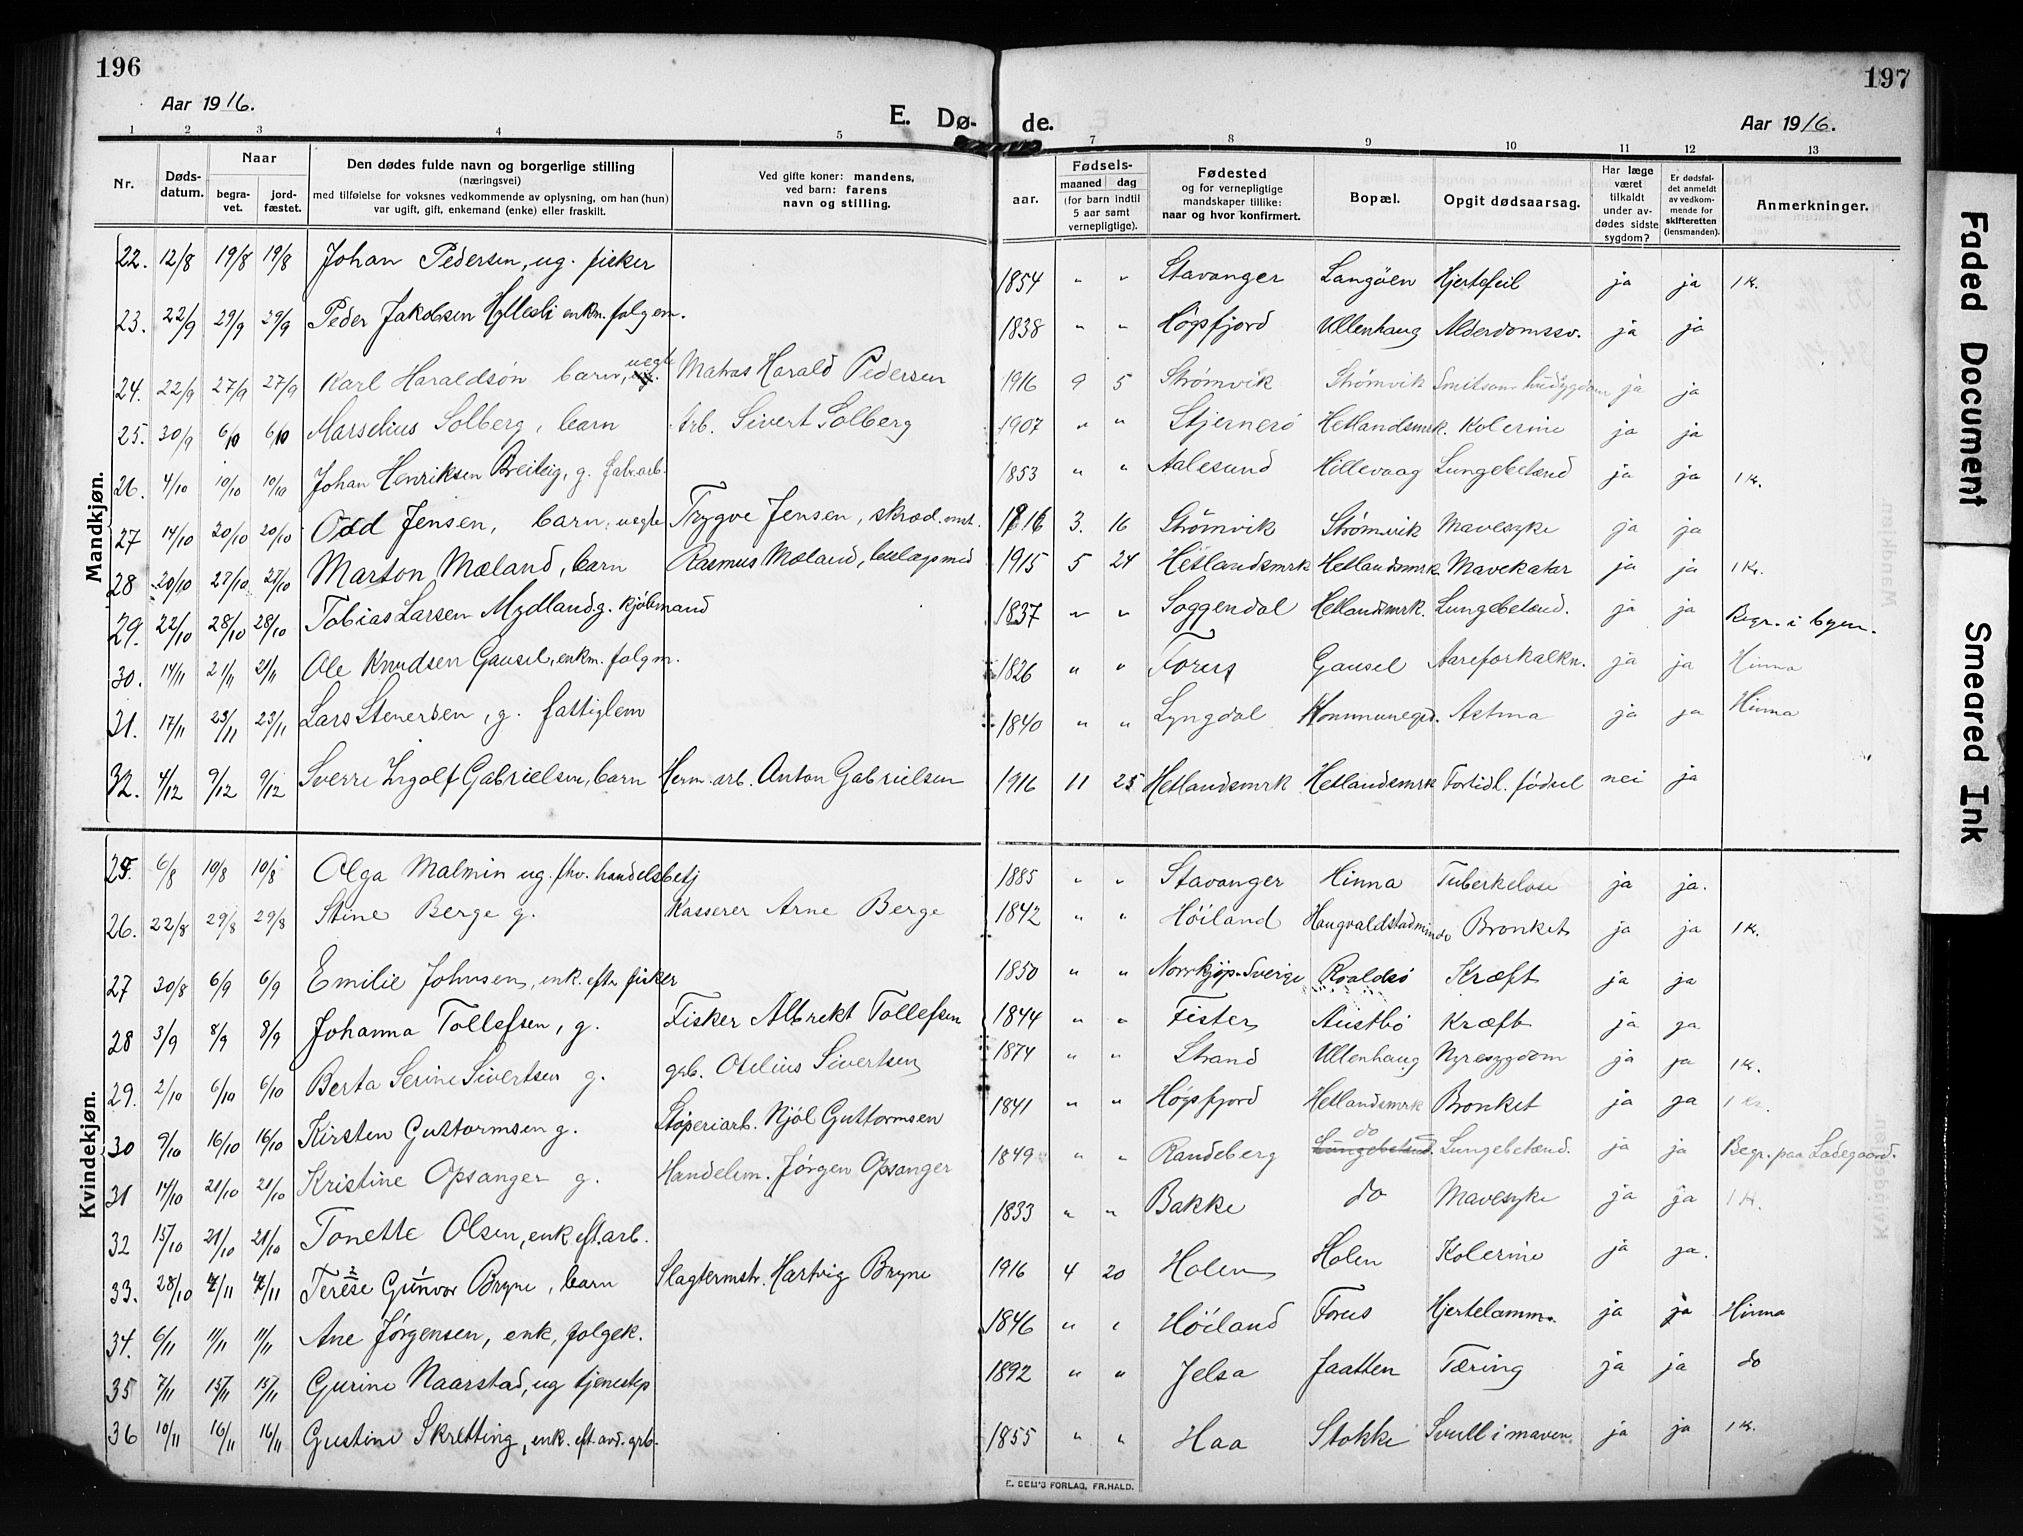 196
Aar 1916.
E. Dø-
de.
Aar 1916.
197
1 2 3 4 5 7 8 9 10 11 12 13
Nr.
Døds-
datum.
Naar
begra-
vet.
jord-
fæstet.
Den dødes fulde navn og borgerlige stilling
(næringsvei)
med tilføielse for voksnes vedkommende av oplysning, om han (hun)
var ugift, gift, enkemand (enke) eller fraskilt.
Ved gifte koner: mandens,
ved barn: farens
navn og stilling.
aar.
Fødsels-
maaned dag
(for barn indtil
5 aar samt
vernepligtige).
Fødested
og for vernepligtige
mandskaper tillike:
naar og hvor konfirmert.
Bopæl.
Opgit dødsaarsag.
Har læge
været
tilkaldt
under av-
dødes sidste
sygdom?
Er dødsfal-
det anmeldt
av vedkom-
mende for
skifteretten
(lensmanden).
Anmerkninger.
Mandkjøn.
22. 12/8 19/8 19/8 Johan Pedersen, ug. fisker 1854 " " Stavanger Langöen Hjertefeil ja ja 1 Kr.
23. 22/9 29/9 29/9 Peder Jakobsen Hyllesli enkm. folgem. 1838 " " Høgsfjord Ullenhaug Alderdomssv. ja ja
24. 22/9 27/9 27/9 Karl Haraldsön barn, uegte Matros Harald Pedersen 1916 9 5 Strømvik Strømvik Smitsom hudsygdom ja ja
25. 30/9 6/10 6/10 Marselius Solberg, barn Arb. Sivert Solberg 1907 " " Stjernerö Hetlandsmrk. Kolerine ja ja
26. 4/10 10/10 10/10 Johan Henriksen Breileig, g. fabr.arb. 1853 " " Aalesund Hillevaag Lungebetænd ja ja 1 Kr.
27 14/10 20/10 20/10 Odd Jensen, barn, uegte Trygve Jensen, skræd.mst. 1916 3. 16 Strömvik Strömvik Mavesyke ja ja
28 20/10 27/10 27/10 Marton Mæland, barn Rasmus Mæland, beslagsmed 1915 5 24 Hetlandsmrk Hetlandsmrk Mavekatar ja ja 1 Kr.
29. 22/10 28/10 28/10 Tobias Larsen Mydland g. kjöbmand 1837 " " Soggendal Hetlandsmrk. Lungebetænd. ja ja Begr. i byen.
30. 14/11 21/11 21/11 Ole Knudsen Gausel, enkm. folgm. 1826 " " Forus Gausel Aareforkalkn. ja ja Hinna
31. 17/11 23/11 23/11 Lars Stenersen, g. fattiglem 1840 " " Lyngdal Kommunegrd. Astma ja ja Hinna
32. 4/12 9/12 9/12 Sverre Ingolf Gabrielsen, barn Herm. arb. Anton Gabrielsen 1916 11 25 Hetlandsmrk Hetlandsmrk Fortidl. födsel nei ja
Kvindekjøn.
25. 6/8 10/8 10/8 Olga Malmin ug. fhv. handelsbetj 1885 " " Stavanger Hinna Tuberkelose ja ja.
26. 22/8 29/8 29/8 Stine Berge g. Kasserer Arne Berge 1842 " " Höiland Haugvaldstadminde Bronket ja ja 1 Kr.
27 30/8 6/9 6/9 Emilie Johnsen, enk. eft. fisker 1850 " " Norrkjöp. Sverige Roaldsö Kræft ja ja
28 3/9 8/9 8/9 Johanna Tollefsen, g. Fisker Albrekt Tollefsen 1844 " " Fister Austbö Kræft ja ja
29. 2/10 6/10 6/10 Berta Serine Sivertsen g. grb. Otelius Sivertsen 1874 " " Strand Ullenhaug Nyresygdom ja ja 1 Kr.
30 9/10 16/10 16/10 Kirsten Guttormsen g. Støperiarb. Njøl Guttormsen 1841 " " Høgsfjord Hetlandsmrk Bronket ja ja 1 Kr.
31 14/10 21/10 21/10 Kristine Opsanger g. Handelsm. Jørgen Opsanger 1849 " " Randeberg do Lungebetænd. Lungebetænd. ja ja Begr. paa Ladegaard.
32 15/10 21/10 21/10 Tonette Olsen, enk eft. arb. 1833 " " Bakke do Mavesyke ja ja 1 Kr.
33. 28/10 4/11 4/11 Terese Gunvor Bryne, barn Slagtermstr. Hartvig Bryne 1916 4 20 Holen Holen Kolerine ja ja.
34. 6/11 11/11 11/11 Ane Jørgensen, enk, folgek. 1846 " " Höiland Forus Hjertelamm. ja ja Hinna
35 7/11 15/11 15/11 Gurine Naarstad, ug tjenestep 1892 " " Jelsa Jaatten Tæring ja ja do
36 10/11 16/11 16/11 Gustine Skretting, enk. eft. avd. grb. 1855 " " Haa Stokke Svull i maven ja ja 1 Kr.
E. SEM'S FORLAG, FR.HALD.
Faded Document
Smeared Ink